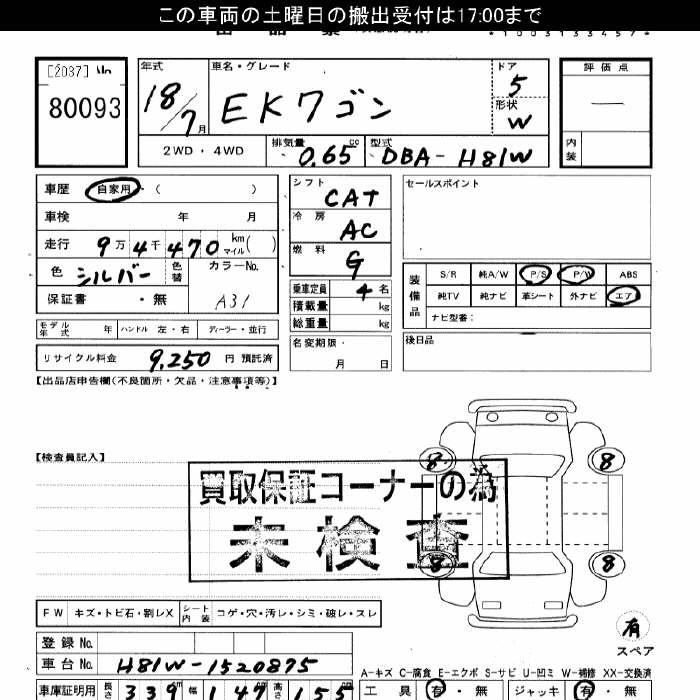 この車両の土曜日の搬出受付は17:00まで
[2037] No
80093
年式 18/7月
車名・グレード EKワゴン
ドア 5
形状 W
評価点 —
内装
2WD・4WD 排気量 0.65 cc 型式 DBA-H81W
車歴 自家用 ( )
車検 年 月
走行 9万4千470 km マイル( )
色 シルバー 色替 カラーNo. A31
保証書 ・無
モデル年式 年 ハンドル 左・右 ディーラー・並行
リサイクル料金 9,250 円 預託済
シフト CAT
冷房 AC
燃料 G
乗車定員 4 名
積載量 kg
総重量 kg
名変期限・ 月 日
セールスポイント
装備品 S/R 純A/W P/S P/W ABS
純TV 純ナビ 革シート 外ナビ エア
ナビ型番:
後日品
【出品店申告欄(不良箇所・欠品・注意事項等)】
【検査員記入】
買取保証コーナーの為
未検査
8 8
8 8
FW キズ・トビ石・割レX シート内装 コゲ・穴・汚レ・シミ・破レ・スレ
有
スペア
登録No.
車台No. H81W-1520875
A-キズ C-腐食 E-エクボ S-サビ U-凹ミ W-補修 XX-交換済
車庫証明用 長さ 339 幅 147 高さ 155
工具 有・無 ジャッキ 有・無